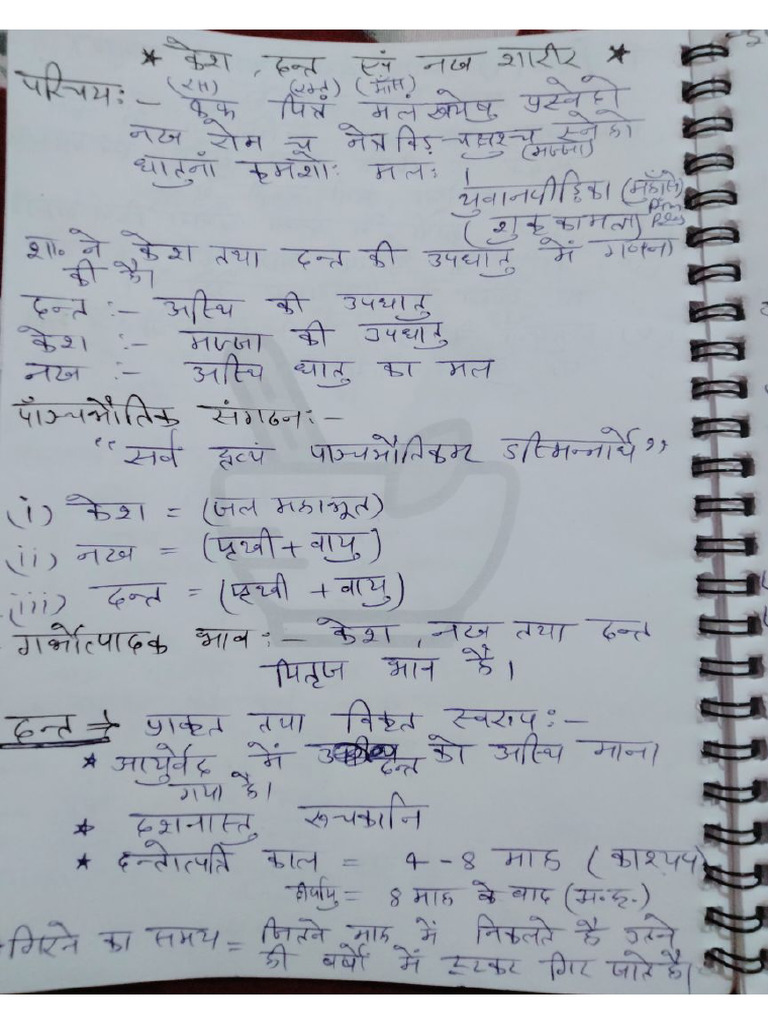 * केश, दन्त एवं नख शारीर *
(रस) (रक्त) (मांस)
परिचय:- कफ पित्त मलं खेषु प्रस्वेदो
नख रोम च नेत्र विड् चक्षुश्च स्नेहो
(मज्जा)
धातुनां क्रमशो: मल: ।
युवानपीडिका (मुहाँसे)
(शुक्र का मल)
शा० ने केश तथा दन्त की उपधातु में गणना
की है।
दन्त :- अस्थि की उपधातु
केश :- मज्जा की उपधातु
नख :- अस्थि धातु का मल
पाँञ्चभौतिक संगठन:-
"सर्व द्रव्यं पाञ्चभौतिकम ऽस्मिन्नार्थे"
(i) केश = (जल महाभूत)
(ii) नख = (पृथ्वी + वायु)
(iii) दन्त = (पृथ्वी + वायु)
गर्भोत्पादक भाव :- केश, नख तथा दन्त
पितृज भाव है।
दन्त ⇒ प्राकृत तथा विकृत स्वरुप:-
* आयुर्वेद में दन्त को अस्थि माना
गया है।
* दशनास्तु रूचकानि
* दन्तोत्पत्ति काल = 4 - 8 माह (काश्यप)
दीर्घायु = 8 माह के बाद (अ.ह.)
गिरने का समय = जितने माह में निकलते है उतने
ही वर्षो में हटकर गिर जाते है।